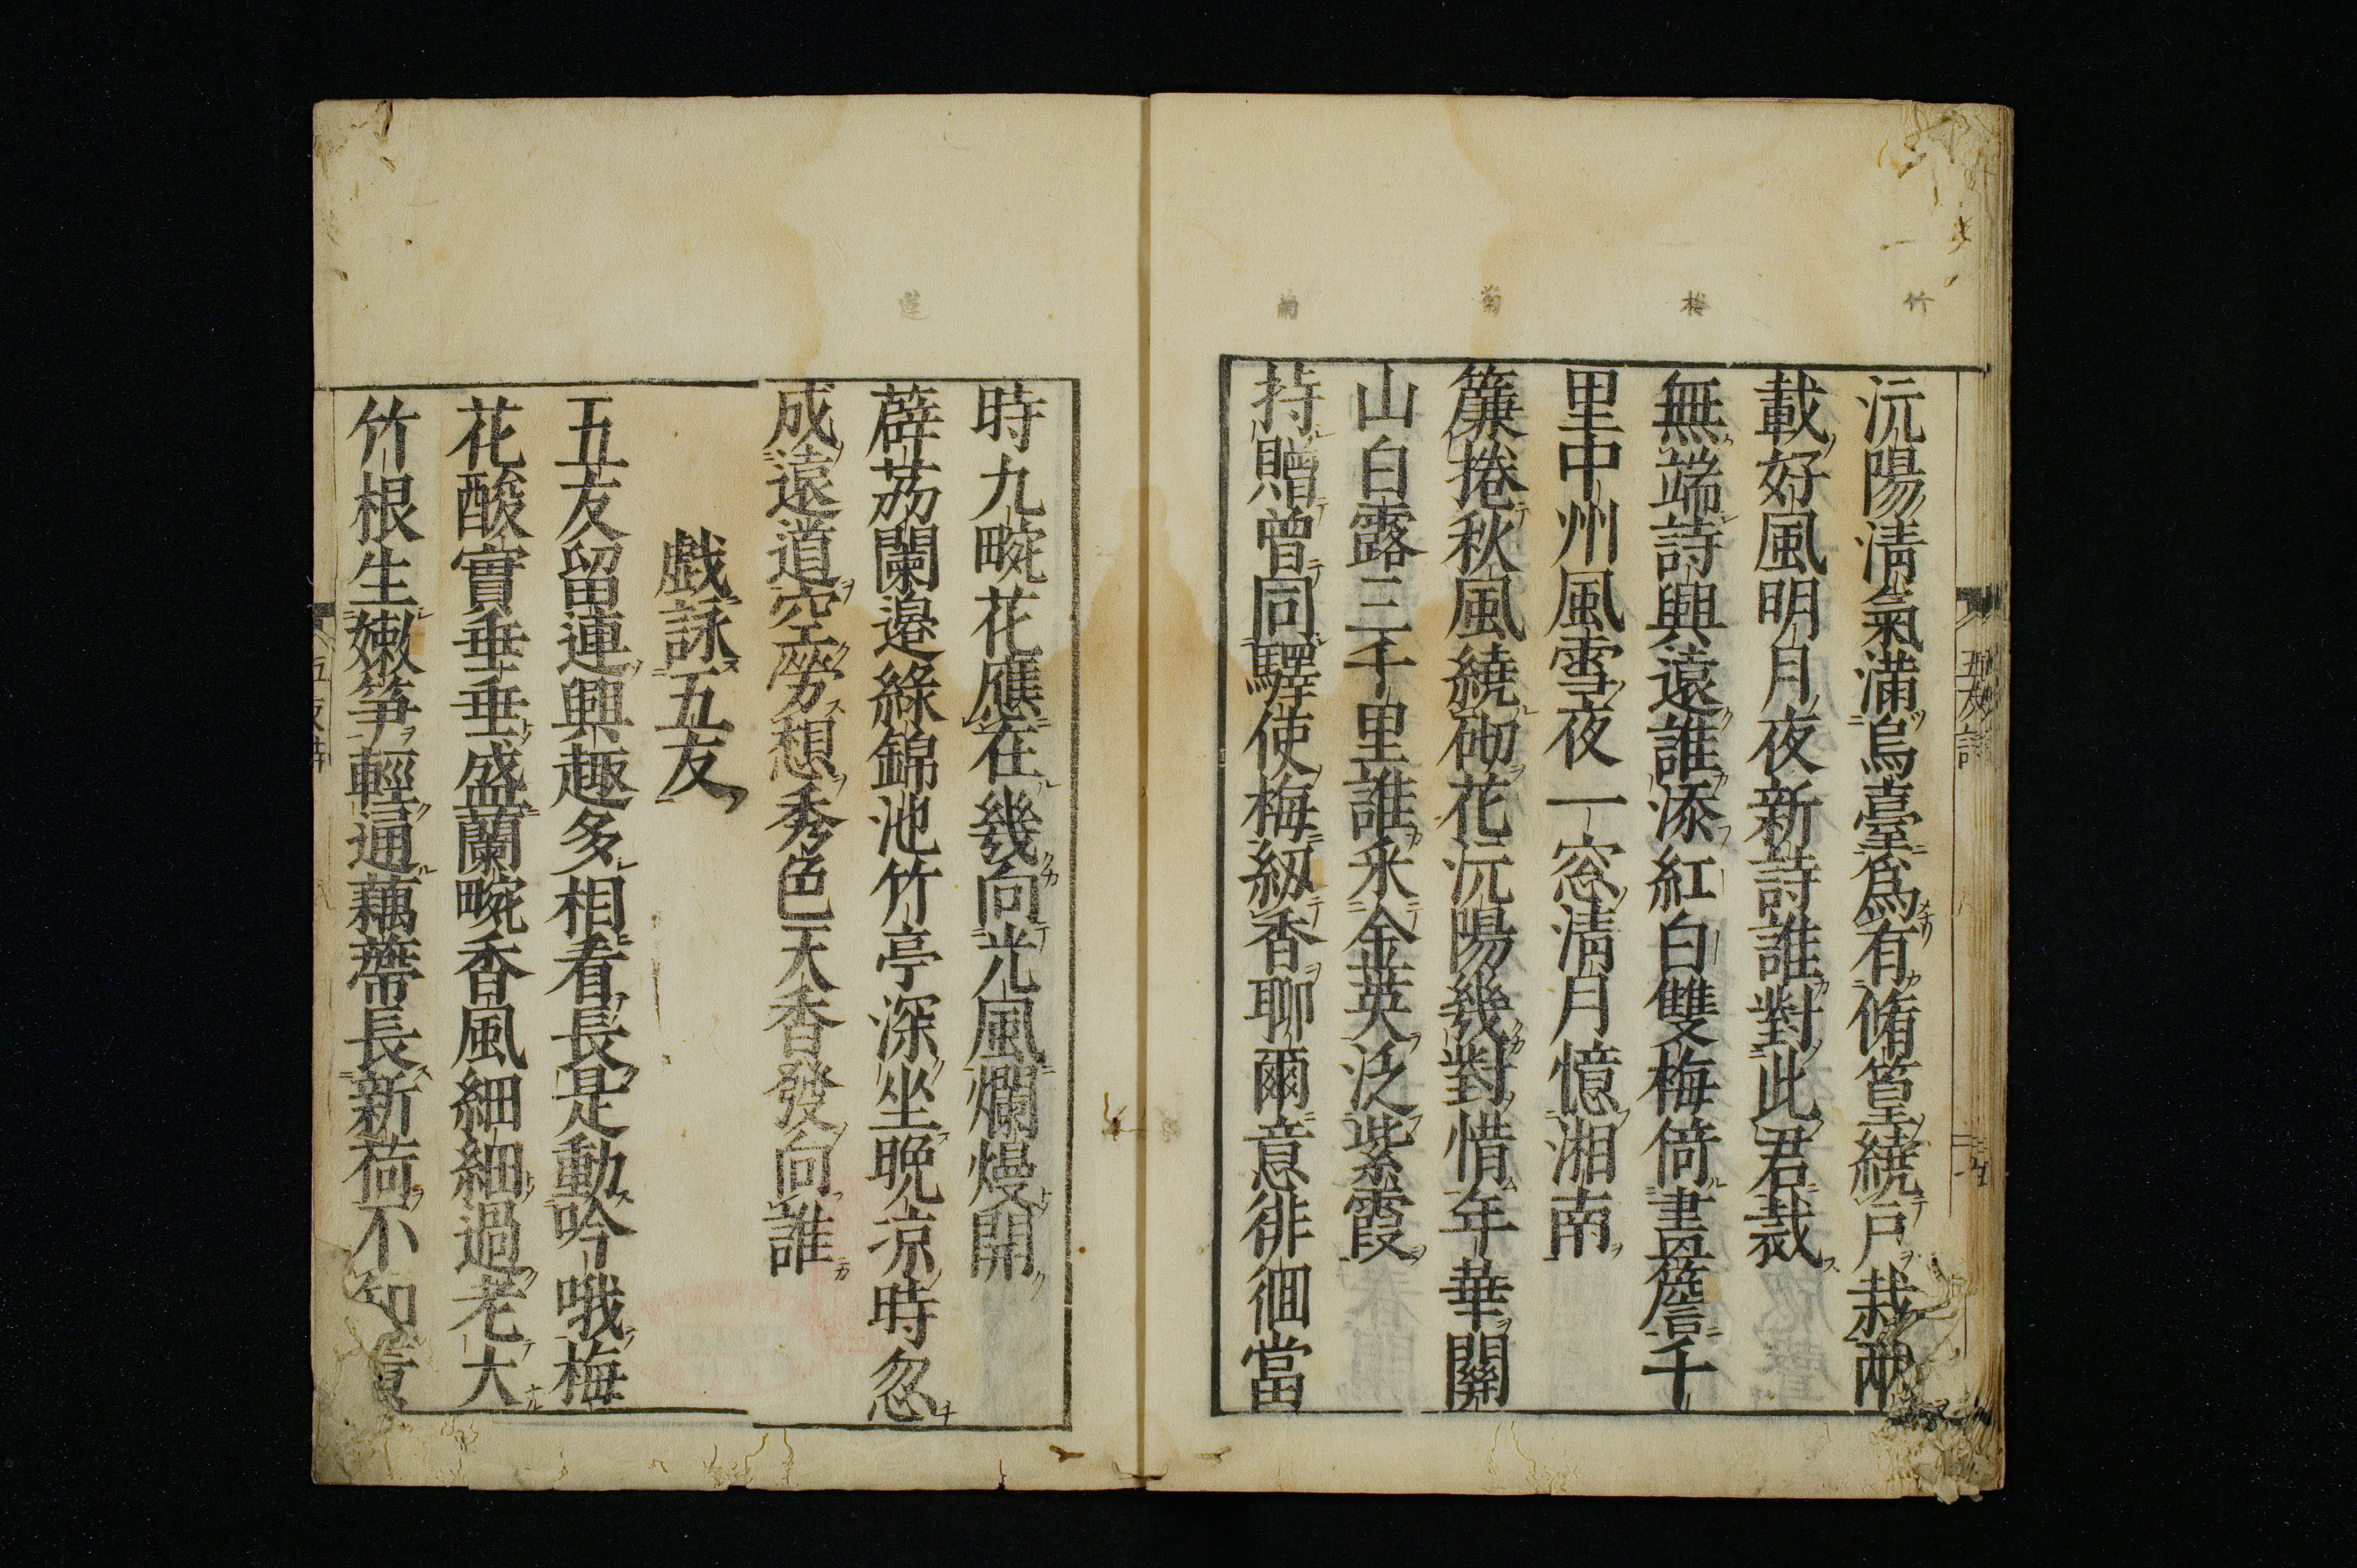 竹
梅
菊
蘭
沅陽清氣滿烏臺爲有脩篁繞戸栽兩
載好風明月夜新詩誰對此君裁
無端詩興遠誰添紅白雙梅倚畫簷千
里中州風雪夜一窓清月憶湘南
簾捲秋風繞砌花沅陽幾對惜年華關
山白露三千里誰采金英泛紫霞
持贈曽同驛使梅紉香聊爾意徘徊當
蓮
時九畹花應在幾向光風爛熳開
薜荔闌邉綠錦池竹亭深坐晩凉時忽
成遠道空勞想秀色天香發向誰
戯詠五友
五友留連興趣多相看長是動吟哦梅
花酸實垂垂盛蘭畹香風細細過老大
竹根生嫩笋輕逼藕蔕長新荷不知
五友詩